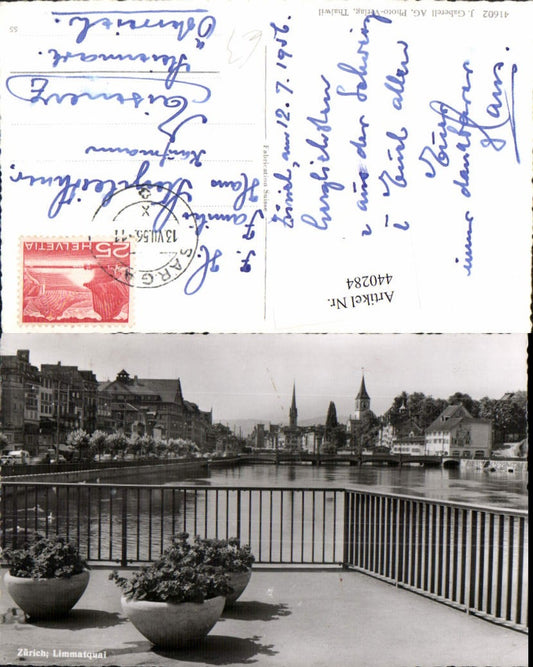 41602 J. Gaberell AG. Photo-Verlag, Thalwil
Zürich, am 12.7.1956
herzlichsten
aus der Schweiz
Euch allen
Euer
immer dankbarer
Hans.
Artikel Nr.
440284
Fabrication Suisse
HELVETIA
25
SARGANS
13.VII.56.-11
X
Familie
Hans
Kaufmann
Eisenerz
Steiermark
Österreich
55
Zürich, Limmatquai